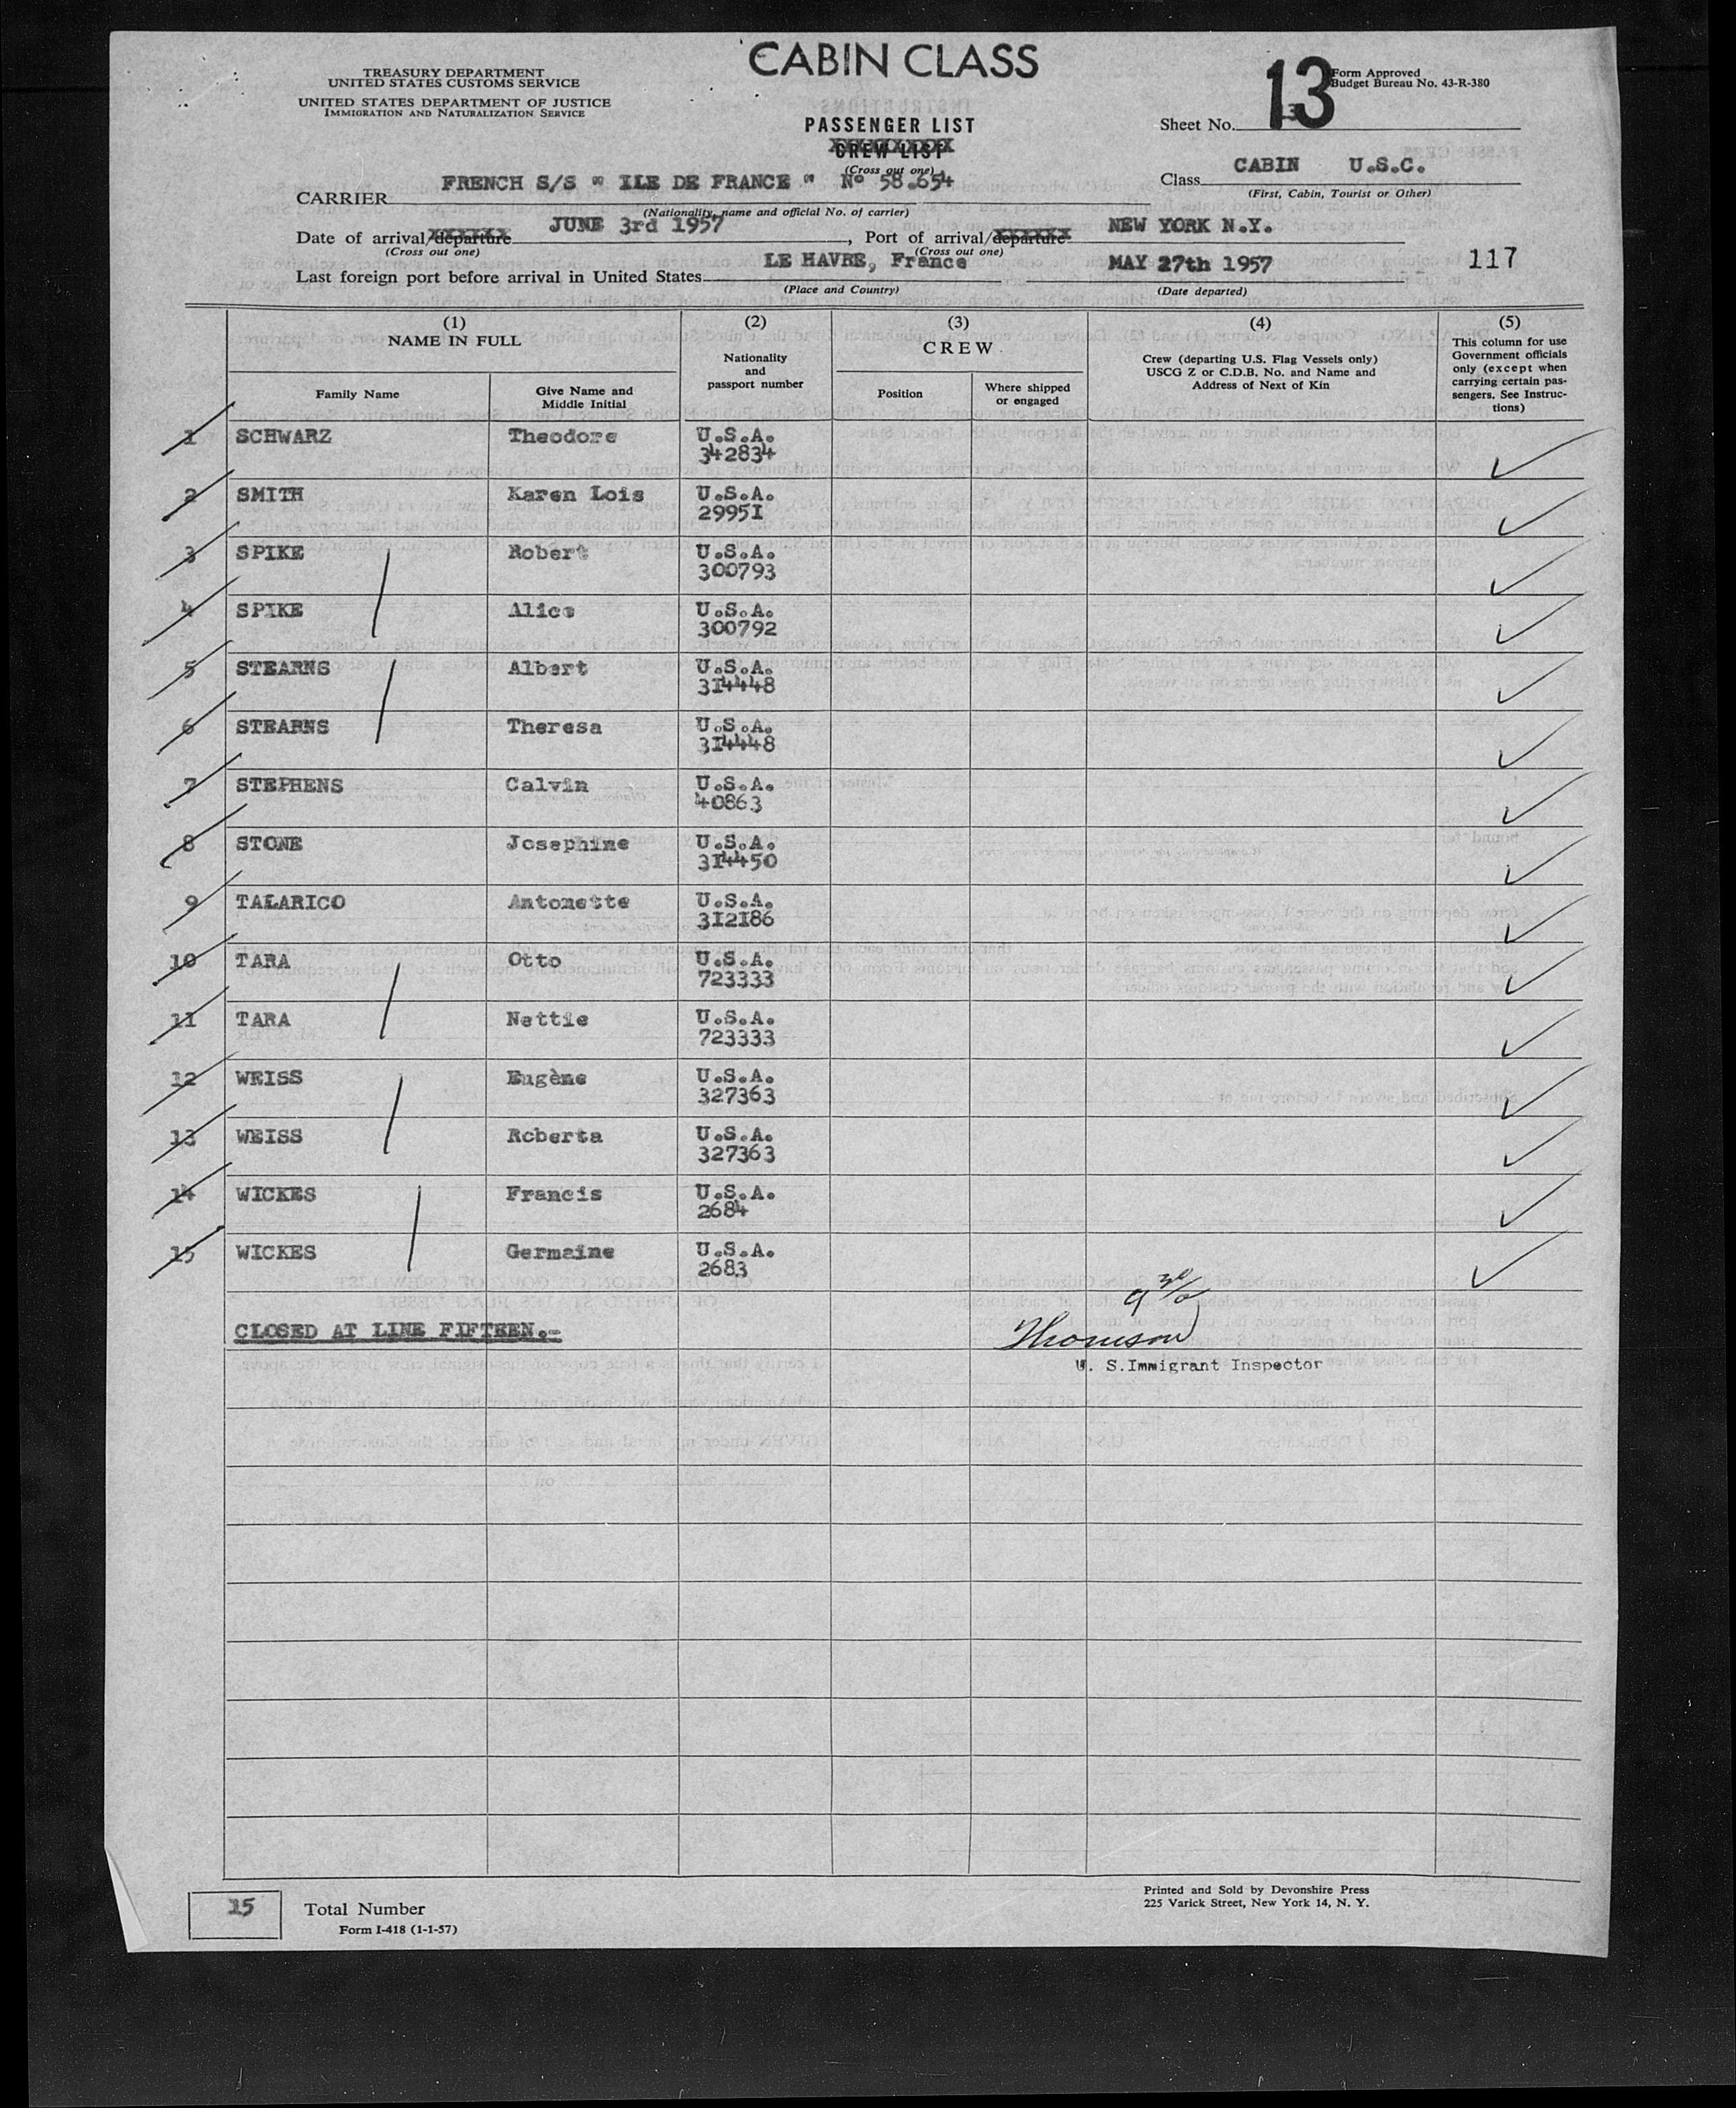 CABIN CLASS
TREASURY DEPARTMENT
UNITED STATES CUSTOMS SERVICE
UNITED STATES DEPARTMENT OF JUSTICE
IMMIGRATION AND NATURALIZATION SERVICE
13
Form Approved
Budget Bureau No. 43-R-380
PASSENGER LIST
CREW LIST
(Cross out one)
Sheet No.
CARRIER FRENCH S/S " ILE DE FRANCE " N° 58.654
(Nationality, name and official No. of carrier)
Class CABIN U.S.C.
(First, Cabin, Tourist or Other)
Date of arrival/departure JUNE 3rd 1957, Port of arrival/departure NEW YORK N.Y.
(Cross out one) (Cross out one)
Last foreign port before arrival in United States LE HAVRE, France MAY 27th 1957 117
(Place and Country) (Date departed)
(1) (2) (3) (4) (5)
NAME IN FULL
Family Name
Give Name and
Middle Initial
Nationality
and
passport number
CREW
Position
Where shipped
or engaged
Crew (departing U.S. Flag Vessels only)
USCG Z or C.D.B. No. and Name and
Address of Next of Kin
This column for use
Government officials
only (except when
carrying certain pas-
sengers. See Instruc-
tions)
1 SCHWARZ Theodore U.S.A.
342834
2 SMITH Karen Lois U.S.A.
2995I
3 SPIKE Robert U.S.A.
300793
4 SPIKE Alice U.S.A.
300792
5 STEARNS Albert U.S.A.
3I4448
6 STEARNS Theresa U.S.A.
3I4448
7 STEPHENS Calvin U.S.A.
40863
8 STONE Josephine U.S.A.
3I4450
9 TALARICO Antonette U.S.A.
3I2I86
10 TARA Otto U.S.A.
723333
11 TARA Nettie U.S.A.
723333
12 WEISS Eugène U.S.A.
327363
13 WEISS Roberta U.S.A.
327363
14 WICKES Francis U.S.A.
2684
15 WICKES Germaine U.S.A.
2683
CLOSED AT LINE FIFTEEN.-
Thomson
U. S.Immigrant Inspector
15
Total Number
Form I-418 (1-1-57)
Printed and Sold by Devonshire Press
225 Varick Street, New York 14, N. Y.